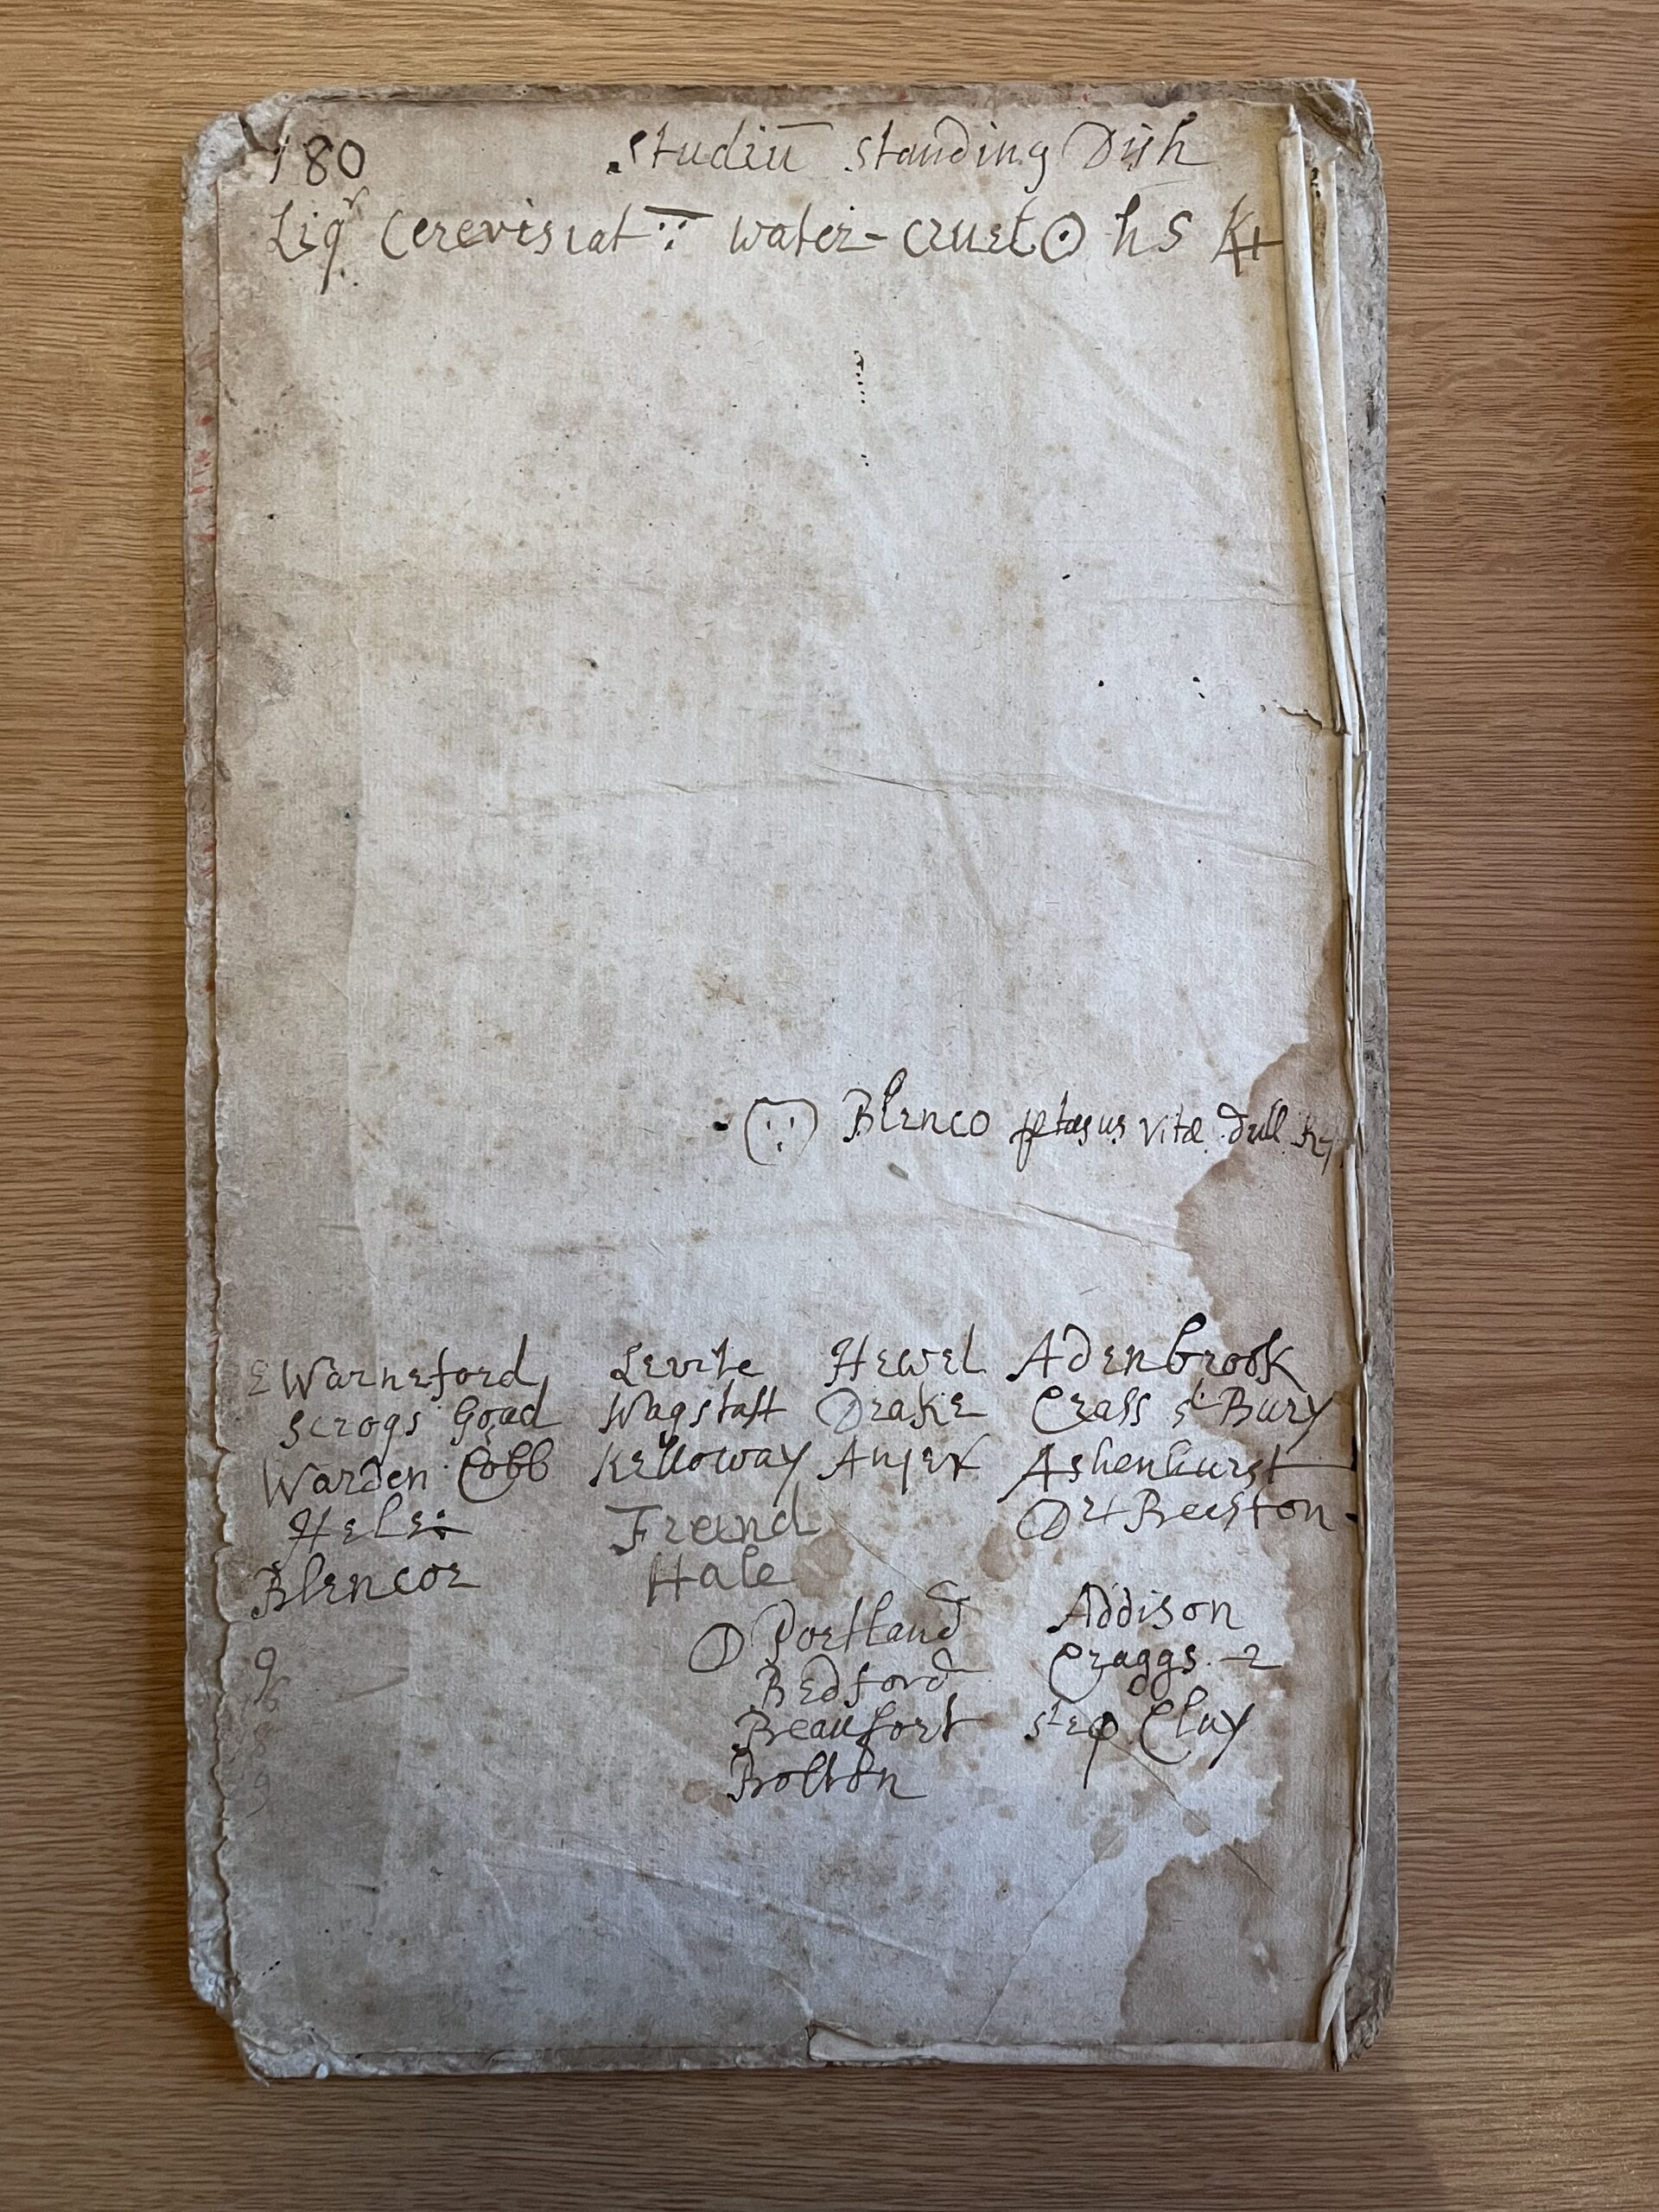 180 Studiū Standing Dish
Liqr Cerevisiat ∵ water-cruet ☉ h S
Blenco petasus vitæ dull
Warneford Levite Hewel Adenbrook
Scrogs Goad Wagstaff Drake Crass St Bury
Warden Cobb Kelloway Anjer Ashenhurst
Hele: Freind Dr Beeston
Blencoe Hale
D Portland Addison
Bedford Craggs - 2
Beaufort Step Clay
Bolton
9
8
9